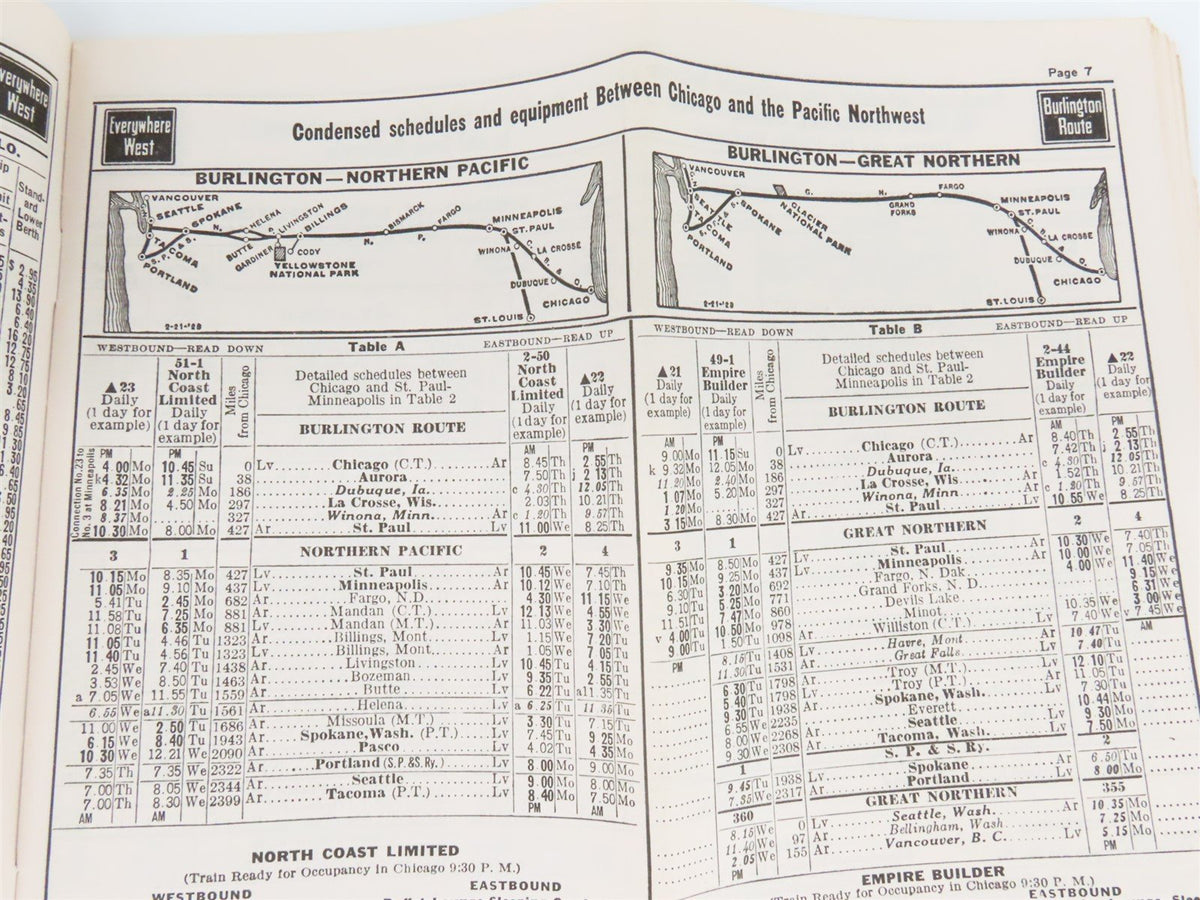 Page 7
Everywhere West
Everywhere
West
Condensed schedules and equipment Between Chicago and the Pacific Northwest
Burlington
Route
BURLINGTON—NORTHERN PACIFIC
VANCOUVER
SEATTLE
SPOKANE
HELENA
LIVINGSTON
BILLINGS
BISMARCK
FARGO
MINNEAPOLIS
ST. PAUL
TACOMA
S. P. & S.
N.
P.
BUTTE
GARDINER
CODY
YELLOWSTONE
NATIONAL PARK
PORTLAND
WINONA
LA CROSSE
DUBUQUE
CHICAGO
ST. LOUIS
2-21-'28
BURLINGTON—GREAT NORTHERN
VANCOUVER
SEATTLE
TACOMA
SPOKANE
PORTLAND
G.
N.
GLACIER
NATIONAL PARK
GRAND
FORKS
FARGO
MINNEAPOLIS
ST. PAUL
WINONA
LA CROSSE
DUBUQUE
CHICAGO
ST. LOUIS
2-21-'28
WESTBOUND—READ DOWN Table A EASTBOUND—READ UP
▲23 Daily (1 day for example)
51-1 North Coast Limited Daily (1 day for example)
Miles from Chicago
Detailed schedules between
Chicago and St. Paul-
Minneapolis in Table 2
BURLINGTON ROUTE
2-50 North Coast Limited Daily (1 day for example)
▲22 Daily (1 day for example)
Connection No. 23 to No. 3 at Minneapolis
PM PM AM PM
4.00 Mo 10.45 Su 0 Lv Chicago (C.T.) Ar 8.45 Th 2.55 Th
k4.32 Mo 11.35 Su 38 Aurora 7.50 Th j 2.13 Th
6.35 Mo 2.25 Mo 186 Dubuque, Ia. c 4.30 Th 12.05 Th
8.21 Mo 4.50 Mo 297 La Crosse, Wis. 2.03 Th 10.21 Th
8.37 Mo 327 Winona, Minn. Ar c 1.20 Th 9.57 Th
10.30 Mo 8.00 Mo 427 Ar St. Paul Lv 11.00 We 8.25 Th
3 1 NORTHERN PACIFIC 2 4
10.15 Mo 8.35 Mo 427 Lv St. Paul Ar 10.45 We 7.45 Th
11.05 Mo 9.10 Mo 437 Lv Minneapolis Ar 10.12 We 7.10 Th
5.41 Tu 2.45 Mo 682 Ar Fargo, N.D. 4.30 We 11.15 We
11.58 Tu 7.25 Mo 881 Ar Mandan (C.T.) Lv 12.13 We 4.55 We
11.08 Tu 6.35 Mo 881 Lv Mandan (M.T.) Ar 11.03 We 3.30 We
11.05 Tu 4.46 Tu 1323 Ar Billings, Mont. Lv 1.15 We 7.20 Tu
11.40 Tu 4.56 Tu 1323 Lv Billings, Mont. Ar 1.05 We 7.05 Tu
2.45 We 7.40 Tu 1438 Ar Livingston Lv 10.45 Tu 4.15 Tu
3.53 We 8.50 Tu 1463 Ar Bozeman Lv 9.35 Tu 2.55 Tu
a 7.05 We 11.55 Tu 1559 Ar Butte Lv 6.22 Tu a11.35 Tu
6.55 We a11.30 Tu 1561 Ar Helena Lv a 6.25 Tu 11.35 Tu
11.00 We 2.50 Tu 1686 Ar Missoula (M.T.) Lv 3.30 Tu 7.15 Tu
6.15 We 8.40 Tu 1943 Ar Spokane, Wash. (P.T.) Lv 7.45 Tu 9.25 Mo
10.30 We 12.21 We 2090 Ar Pasco Lv 4.02 Tu 4.35 Mo
7.35 Th 7.35 We 2322 Ar Portland (S.P.&S.Ry.) Lv 8.00 Mo 9.00 Mo
7.00 Th 8.05 We 2344 Ar Seattle Lv 9.00 Mo 8.00 Mo
7.00 Th 8.30 We 2399 Ar Tacoma (P.T.) Lv 8.40 Mo 7.50 Mo
AM AM PM AM
NORTH COAST LIMITED
(Train Ready for Occupancy in Chicago 9:30 P. M.)
WESTBOUND EASTBOUND
WESTBOUND—READ DOWN Table B EASTBOUND—READ UP
▲21 Daily (1 day for example)
49-1 Empire Builder Daily (1 day for example)
Miles from Chicago
Detailed schedules between
Chicago and St. Paul-
Minneapolis in Table 2
BURLINGTON ROUTE
2-44 Empire Builder Daily (1 day for example)
▲22 Daily (1 day for example)
AM PM AM PM
9.00 Mo 11.15 Su 0 Lv Chicago (C.T.) Ar 8.40 Th 2.55 Th
k 9.32 Mo 12.05 Mo 38 Aurora 7.42 Th j 2.13 Th
11.20 Mo 2.40 Mo 186 Dubuque, Ia. c 4.30 Th 12.05 Th
1.07 Mo 5.20 Mo 297 La Crosse, Wis. 1.52 Th 10.21 Th
1.20 Mo 327 Winona, Minn. Ar c 1.20 Th 9.57 Th
3.15 Mo 8.30 Mo 427 Ar St. Paul Lv 10.55 We 8.25 Th
3 1 GREAT NORTHERN 2 4
9.35 Mo 8.50 Mo 427 Lv St. Paul Ar 10.30 We 7.40 Th
10.15 Mo 9.25 Mo 437 Lv Minneapolis Ar 10.00 We 7.05 Th
6.30 Tu 3.20 Mo 692 Fargo, N. Dak. 4.00 We 11.40 We
9.10 Tu 5.25 Mo 771 Grand Forks, N. D. 9.15 We
11.51 Tu 7.47 Mo 860 Devils Lake 6.31 We
v 4.00 Tu 10.50 Mo 978 Minot 10.35 We 3.00 We
9.00 Tu 1.50 Tu 1098 Ar Williston (C.T.) Lv 7.40 We v 7.45 We
PM AM
8.15 Tu 1408 Havre, Mont. Ar 10.47 Tu
11.30 Tu 1531 Ar Great Falls Lv 7.40 Tu
6.30 Tu 1798 Ar Troy (M.T.) Lv 12.10 Tu
5.40 Tu 1798 Lv Troy (P.T.) Ar 11.05 Tu
9.30 Tu 1938 Ar Spokane, Wash. Lv 7.30 Tu
6.55 We 2235 Ar Everett 10.44 Mo
8.00 We 2268 Ar Seattle Lv 9.30 Mo
9.30 We 2308 Ar Tacoma, Wash. Lv 7.50 Mo
1 S. P. & S. Ry. 2
9.45 Tu 1938 Lv Spokane Ar 6.50 Tu
7.35 We 2317 Ar Portland Lv 8.00 Mo
360 GREAT NORTHERN 355
8.15 We 0 Lv Seattle, Wash. Ar 10.35 Mo
11.40 We 97 Ar Bellingham, Wash. 7.25 Mo
2.05 We 155 Ar Vancouver, B. C. Lv 5.15 Mo
PM PM
EMPIRE BUILDER
(Train Ready for Occupancy in Chicago 9:30 P. M.)
EASTBOUND